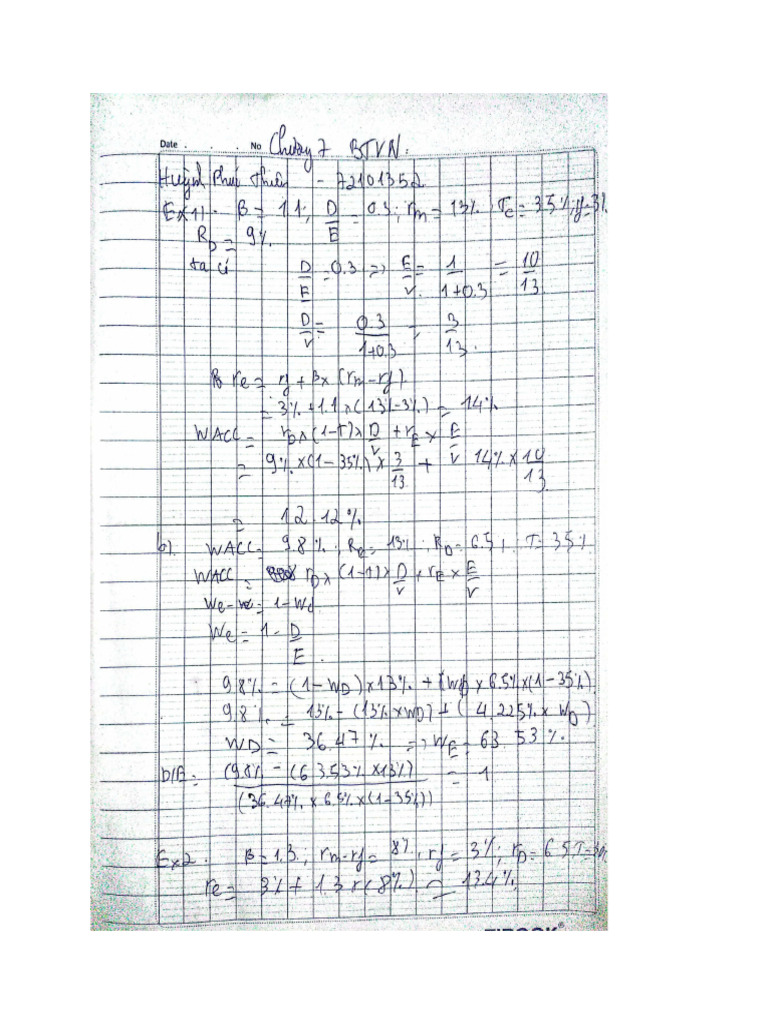 Date . . . . No Chương 7 BTVN:
Huỳnh Phúc Thiên - 72101352
Ex1). β = 1.1; D/E = 0.3; rm = 13%; Tc = 35%; rf = 3%
R_D = 9%
ta có D/E = 0.3 => E/V = 1/(1+0.3) = 10/13
D/V = 0.3/(1+0.3) = 3/13.
re = rf + β x (rm - rf)
= 3% + 1.1 x (13% - 3%) = 14%
WACC = r_D x (1-T) x D/V + r_E x E/V
= 9% x (1 - 35%) x 3/13 + 14% x 10/13
= 12.12%
b). WACC = 9.8%; Re = 13%; R_D = 6.5%. T = 35%
WACC = r_D x (1-T) x D/V + r_E x E/V
We = 1 - Wd
We = 1 - D/E.
9.8% = (1 - W_D) x 13% + (W_D x 6.5% x (1 - 35%)
9.8% = 13% - (13% x W_D) + (4.225% x W_D)
W_D = 36.47% => W_E = 63.53%
D/E = (9.8% - (63.53% x 13%) / (36.47% x 6.5% x (1 - 35%)) = 1
Ex2. β = 1.3; rm - rf = 8%; rf = 3%; r_D = 6.5
re = 3% + 1.3 x (8%) = 13.4%